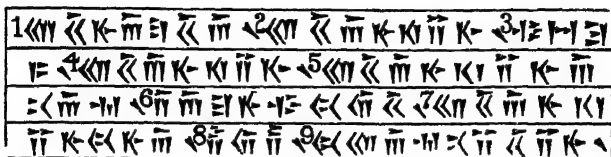 1𐎧𐏁𐎹𐎠𐎼𐏁𐎠𐏐2𐎧𐏁𐎠𐎹𐎰𐎡𐎹𐏐3𐎺𐏀𐎼
𐎣𐏐4𐎧𐏁𐎠𐎹𐎰𐎡𐎹𐏐5𐎧𐏁𐎠𐎹𐎰𐎡𐎹𐎠
𐎴𐎠𐎶𐏐6𐎭𐎠𐎼𐎹𐎺𐏃𐎢𐏁𐏐7𐎧𐏁𐎠𐎹𐎰
𐎡𐎹𐏃𐎹𐎠𐏐8𐎱𐎢𐏂𐏐9𐏃𐎧𐎠𐎶𐎴𐎡𐏁𐎡𐎹𐏐